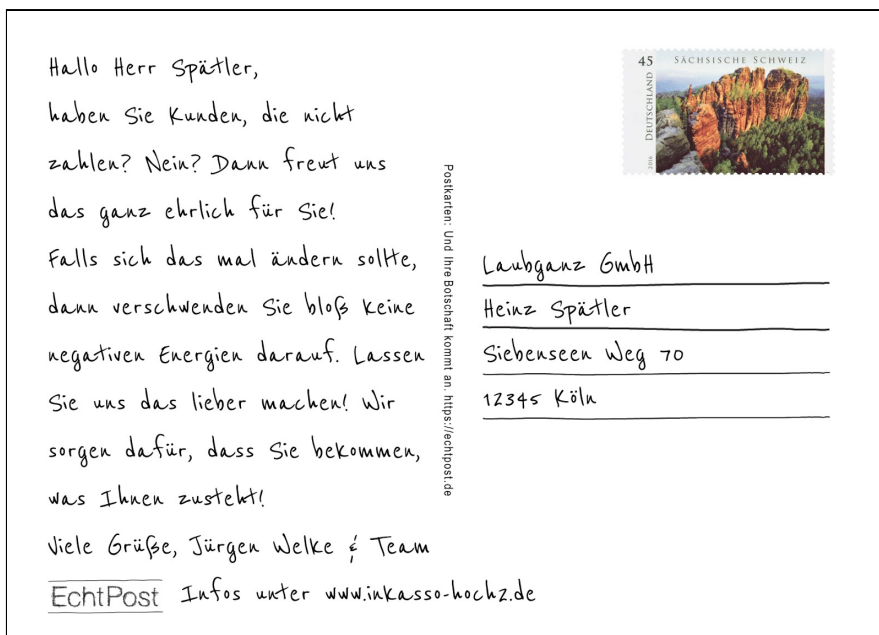 Hallo Herr Spätler,
haben Sie Kunden, die nicht
zahlen? Nein? Dann freut uns
das ganz ehrlich für Sie!
Falls sich das mal ändern sollte,
dann verschwenden Sie bloß keine
negativen Energien darauf. Lassen
Sie uns das lieber machen! Wir
sorgen dafür, dass Sie bekommen,
was Ihnen zusteht!
Viele Grüße, Jürgen Welke & Team
EchtPost Infos unter www.inkasso-hochz.de
Postkarten: Und Ihre Botschaft kommt an. https://echtpost.de
45 SÄCHSISCHE SCHWEIZ
DEUTSCHLAND
2016
Laubganz GmbH
Heinz Spätler
Siebenseen Weg 70
12345 Köln